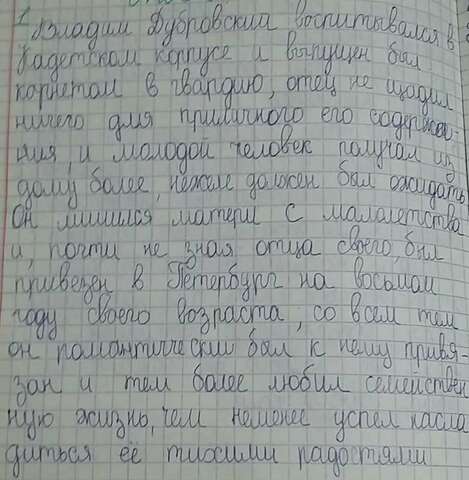 1 Владим Дубровский воспитывался в
Кадетском корпусе и выпущен был
корнетом в гвардию, отец не щадил
ничего для приличного его содержа-
ния, и молодой человек получал из
дому более, нежели должен был ожидать
Он лишился матери с малалетства
и, почти не зная отца своего, был
привезен в Петербург на восьмом
году своего возраста, со всем тем
он романтически был к нему привя-
зан и тем более любил семействен
ную жизнь, чем неменее успел насла
диться её тихими радостями